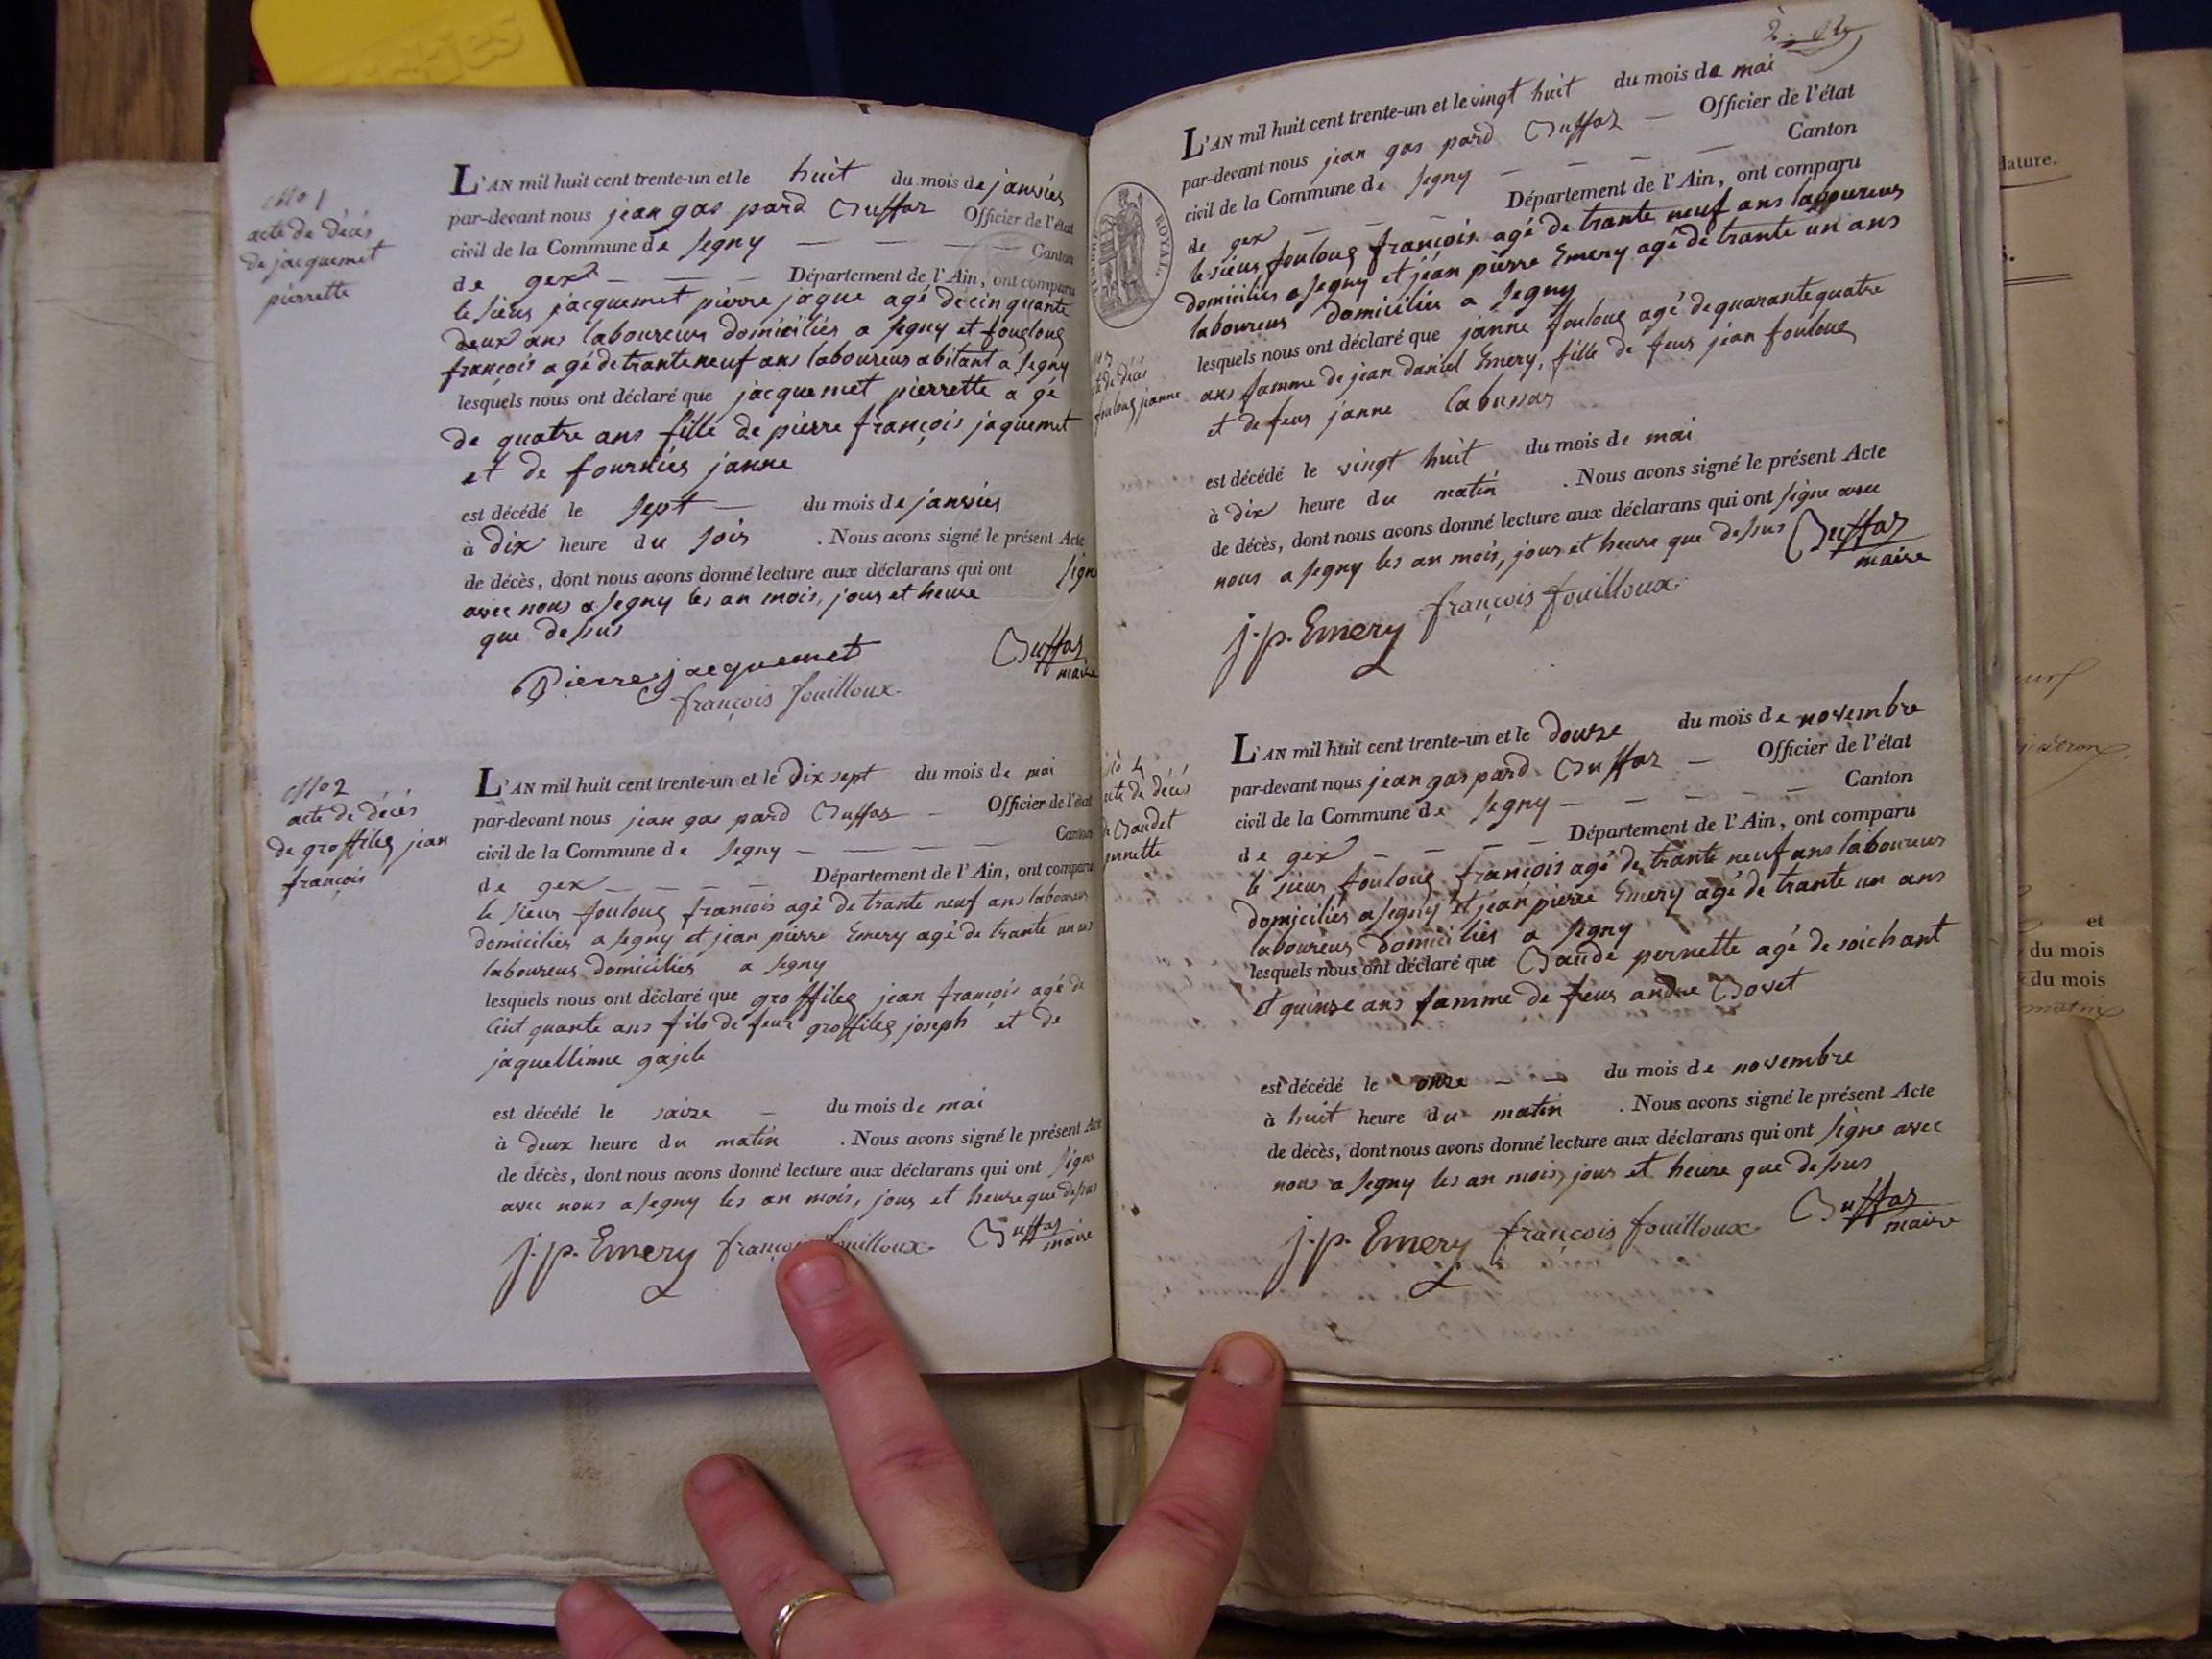 N.o 1
acte de décès
de jacquemet
pierrette
L'AN mil huit cent trente-un et le huit du mois de janvier
par-devant nous jean gas pard Buffaz Officier de l'état
civil de la Commune de segny — — — Canton
de gex — — — Département de l'Ain, ont comparu
le sieur jacquemet pierre jaque agé de cinquante
deux ans laboureur domicilier a segny et fouglouz
françois agé de trante neuf ans laboureur abitant a segny
lesquels nous ont déclaré que jacquemet pierrette a gé
de quatre ans fille de pierre françois jaquemet
et de fournier janne
est décédé le sept — du mois de janvier
à dix heure du soir . Nous avons signé le présent Acte
de décès, dont nous avons donné lecture aux déclarans qui ont signe
avec nous a segny les an mois, jour et heure
que dessus
Pierre jacquemet
Buffaz
maire
françois fouilloux.
N.o 2
acte de décès
de groffilez jean
françois
L'AN mil huit cent trente-un et le dix sept du mois de mai
par-devant nous jean gas pard Buffaz — Officier de l'état
civil de la Commune de segny — — — — Canton
de gex — — — — Département de l'Ain, ont comparu
le sieur foulouz francois agé de trante neuf ans laboureur
domicilier a segny et jean pierre Emery agé de trante un ans
laboureur domicilier a segny
lesquels nous ont déclaré que groffilez jean françois agé de
cint quante ans fils de feur groffilez joseph et de
jaquelinne gajele
est décédé le saize — du mois de mai
à deux heure du matin . Nous avons signé le présent Acte
de décès, dont nous avons donné lecture aux déclarans qui ont signe
avec nous a segny les an mois, jour et heure que dessus
j. p. Emery françois fouilloux. Buffaz
maire
2.
L'AN mil huit cent trente-un et le vingt huit du mois de mai
par-devant nous jean gas pard Buffaz — Officier de l'état
civil de la Commune de segny — — — — Canton
de gex — — — Département de l'Ain, ont comparu
le sieur foulouz françois agé de trante neuf ans laboureur
domicilier a segny et jean pierre Emery agé de trante un ans
laboureur domicilier a segny
lesquels nous ont déclaré que janne foulouz agé de quarante quatre
ans famme de jean daniel Emery, fille de feur jean foulouz
et de feur janne Labussar
est décédé le vingt huit du mois de mai
à dix heure du matin . Nous avons signé le présent Acte
de décès, dont nous avons donné lecture aux déclarans qui ont signe avec
nous a segny les an mois, jour et heure que dessus Buffaz
maire
j. p. Emery françois fouilloux.
ROYAL
TIMBRE
de décès
foulouz jeanne
L'AN mil huit cent trente-un et le douze du mois de novembre
par-devant nous jean gas pard Buffaz — Officier de l'état
civil de la Commune de segny — — — — — Canton
de gex — — — — Département de l'Ain, ont comparu
le sieur foulouz françois agé de trante neuf ans laboureur
domicilier a segny et jean pierre Emery agé de trante un ans
laboureur domicilier a segny
lesquels nous ont déclaré que Baude pernette agé de soichant
et quinze ans famme de feur andre Bovet
est décédé le onze — — du mois de novembre
à huit heure du matin . Nous avons signé le présent Acte
de décès, dont nous avons donné lecture aux déclarans qui ont signe avec
nous a segny les an mois, jour et heure que dessus
j. p. Emery françois fouilloux. Buffaz
maire
No 4
acte de décès
de Baudet
pernette
lature.
et
du mois
du mois